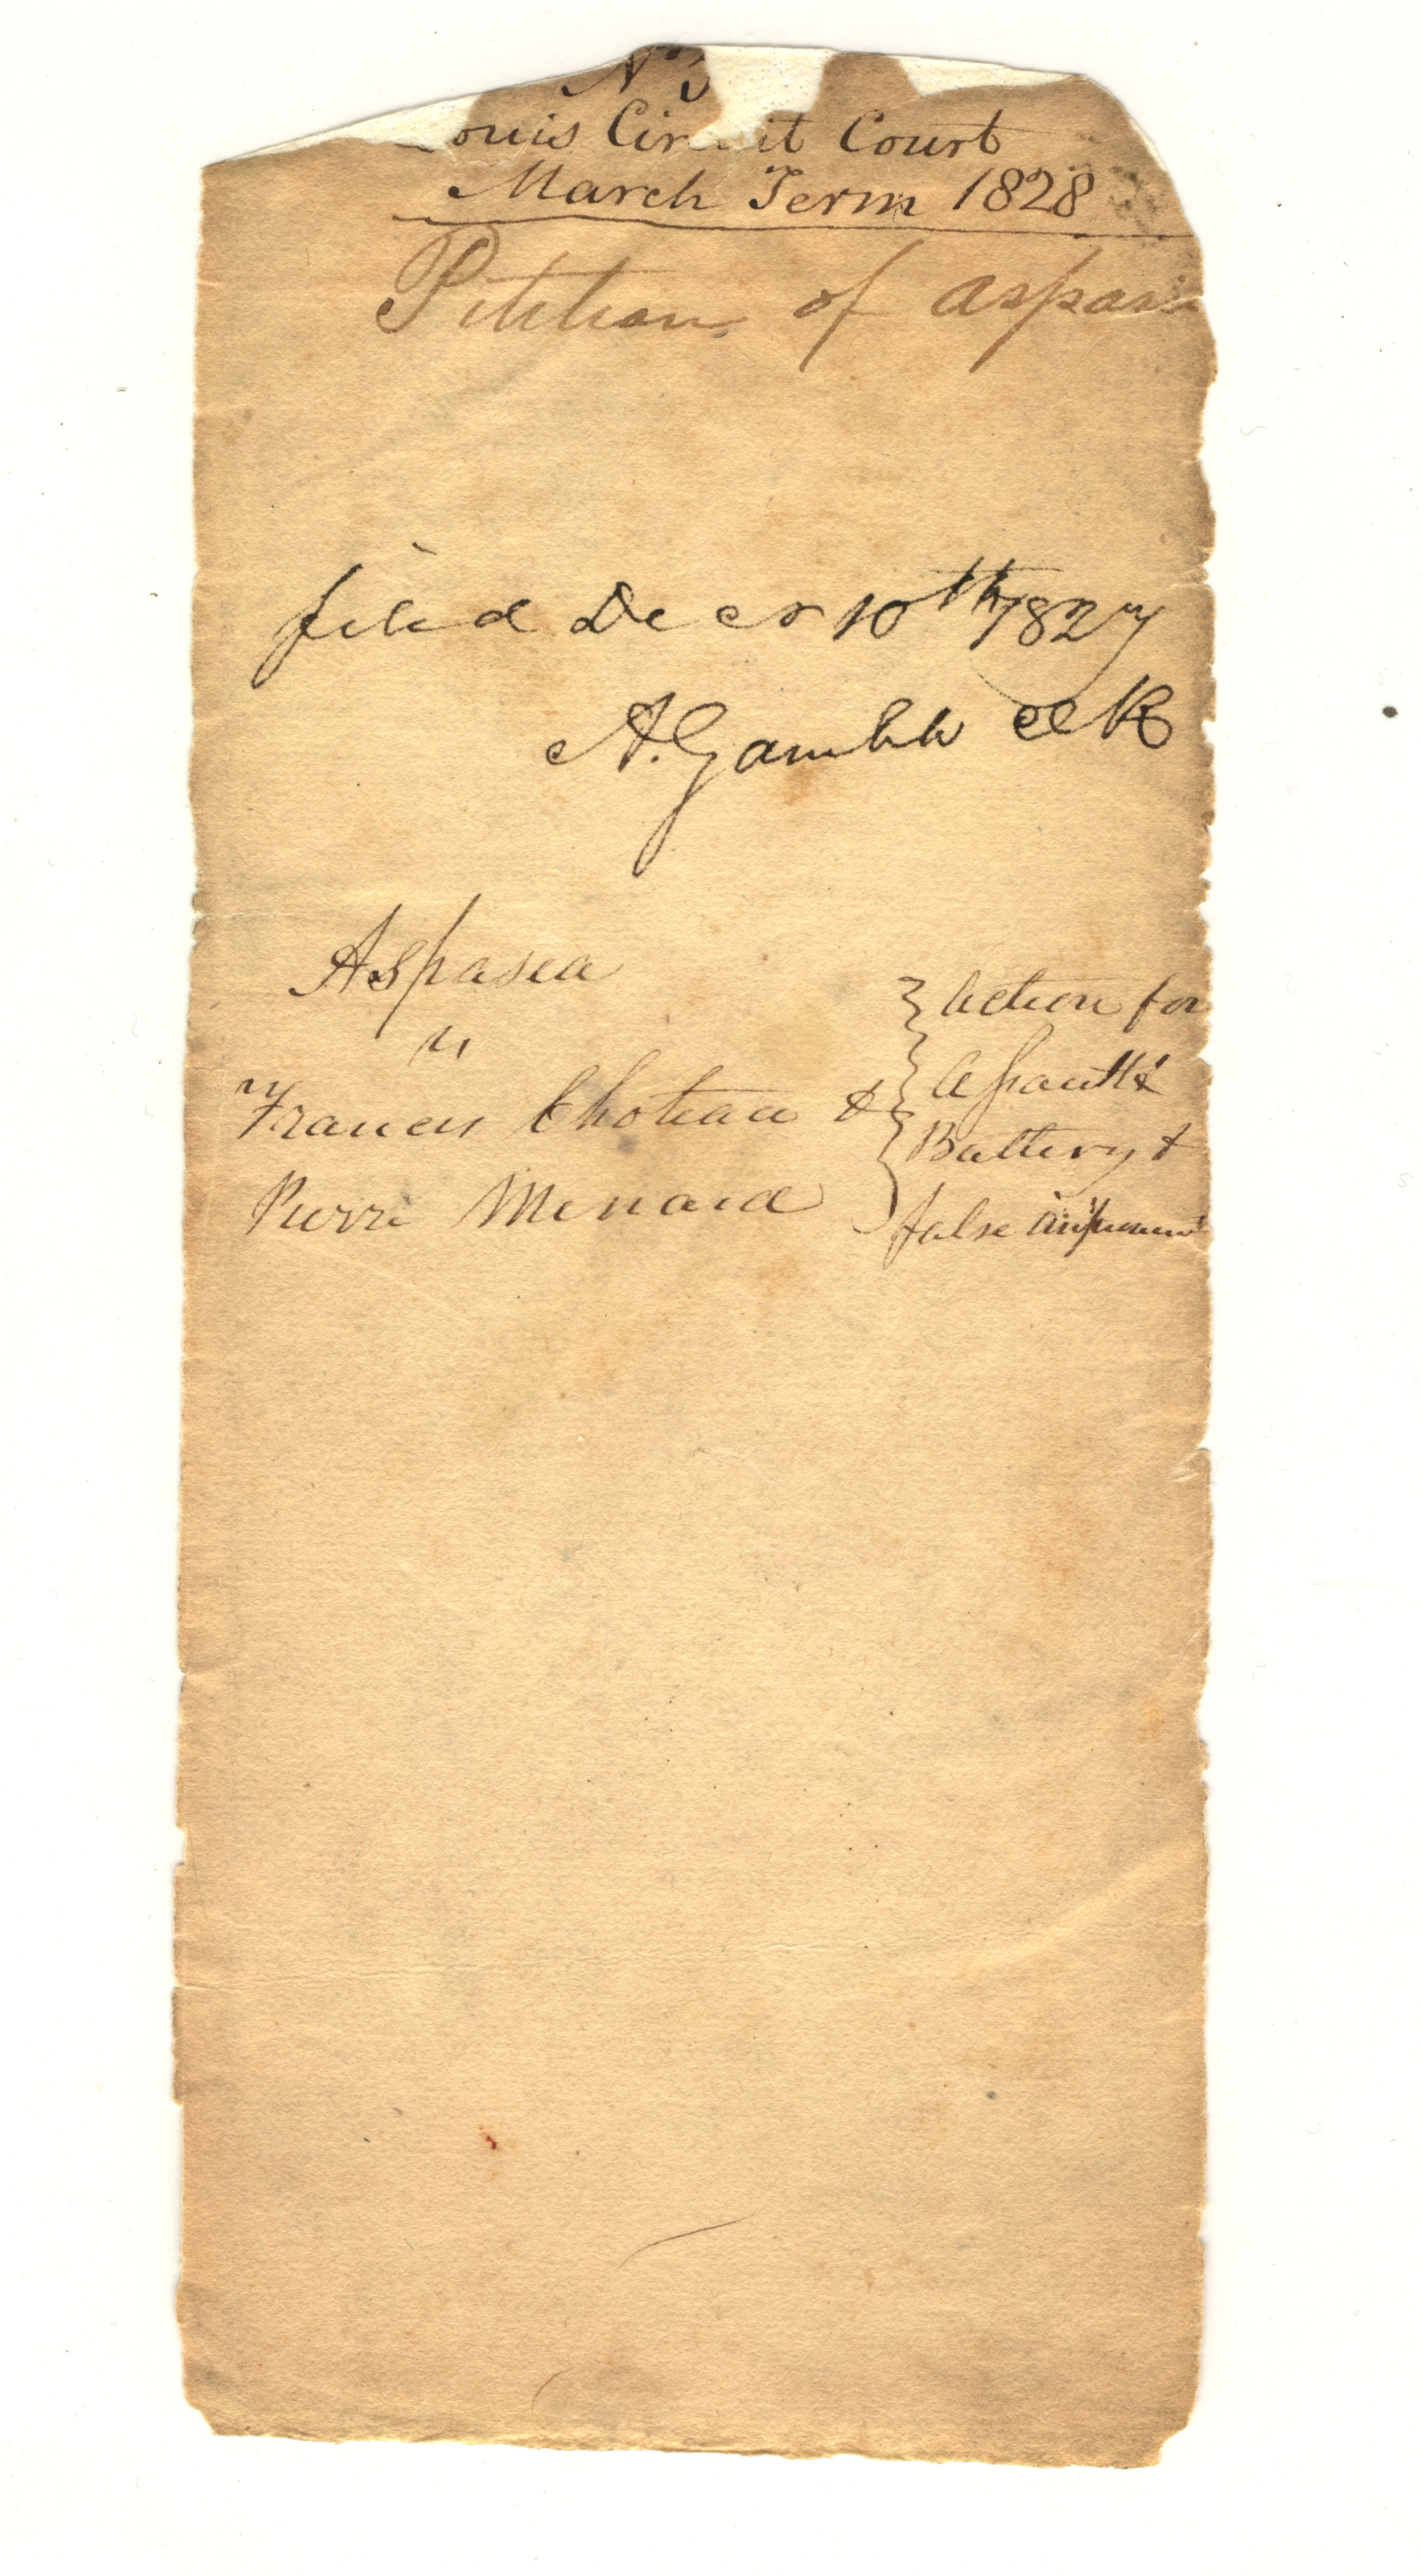 No
ouis Circuit Court
March Term 1828
Petition of aspasia
filed Decr 10th 1827
A. Gamble clk
Aspasia
vs
Francis Choteau &
Pierre Menard
Action for
Assault &
Battery &
false imprisonmt